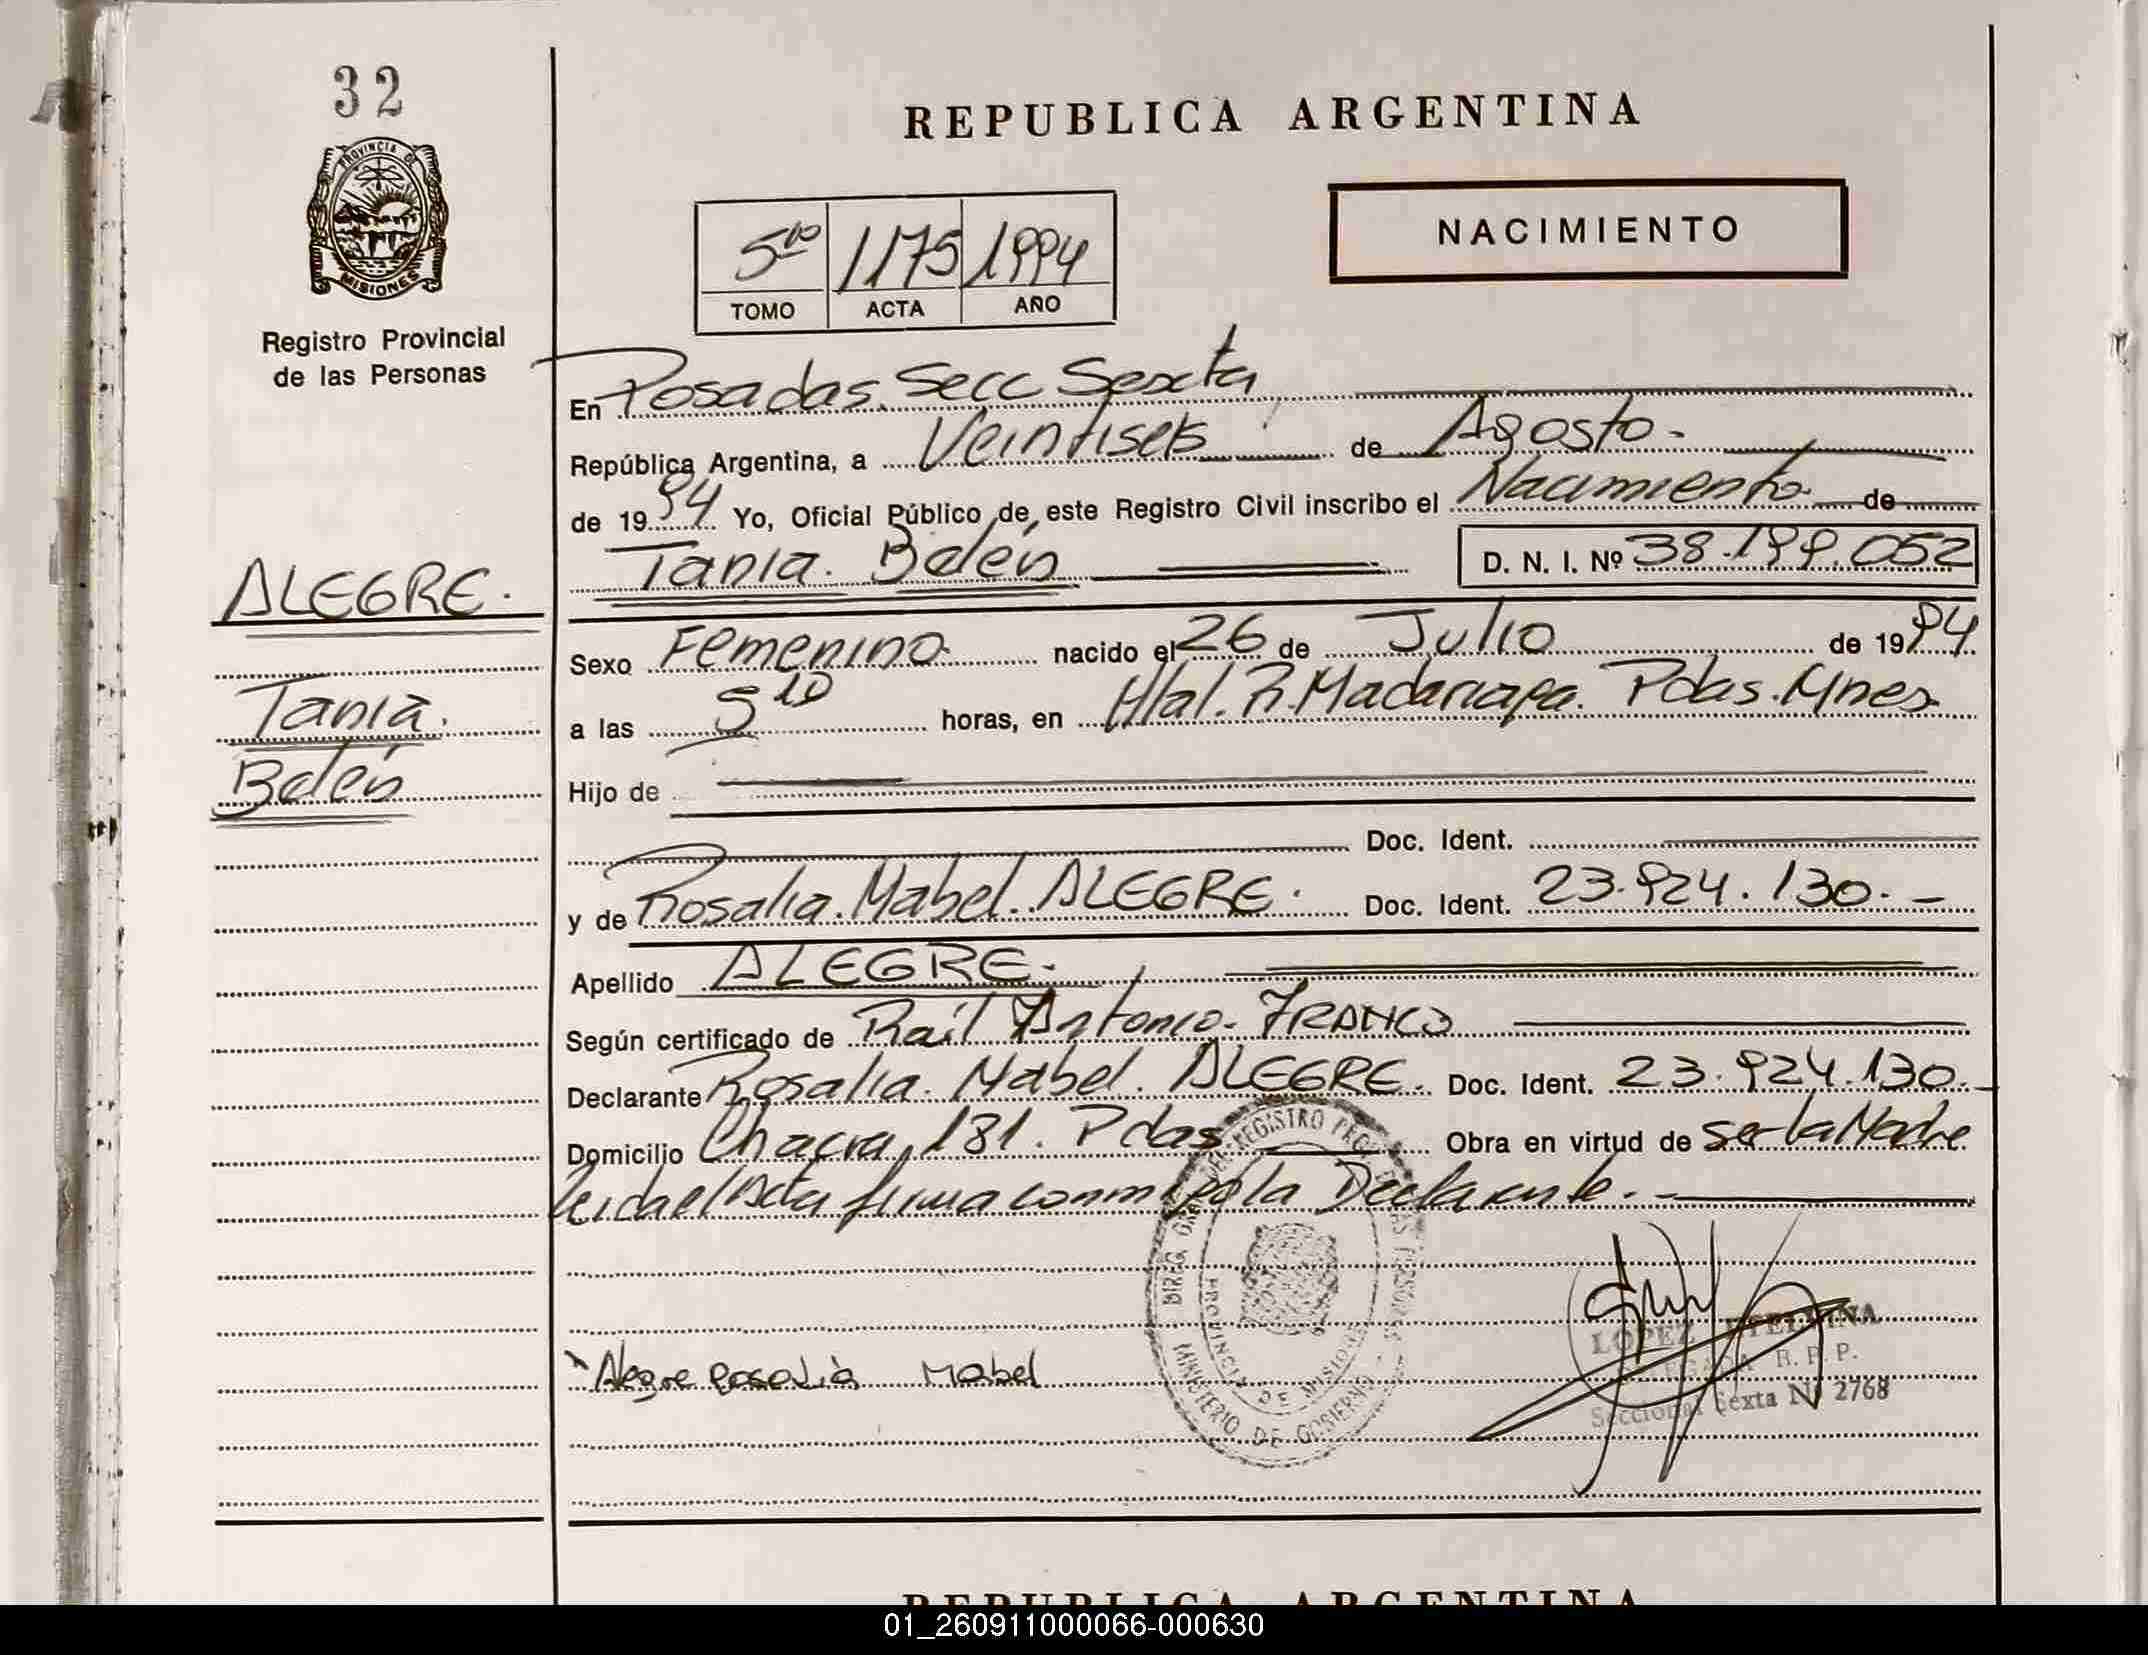 32
REPUBLICA ARGENTINA
PROVINCIA DE
MISIONES
NACIMIENTO
5to 1175 1994
TOMO ACTA AÑO
Registro Provincial
de las Personas
En Posadas. Secc Sexta
República Argentina, a Veintiseis de Agosto.-
de 1994 Yo, Oficial Público de este Registro Civil inscribo el Nacimiento de
Tania. Belén D. N. I. Nº 38.199.052
ALEGRE.
Tania.
Belén
Sexo Femenino nacido el 26 de Julio de 1994
a las 5 10 horas, en Htal. R. Madariaga. Pdas. Mnes.
Hijo de
Doc. Ident.
y de Rosalia. Mabel. ALEGRE. Doc. Ident. 23.924.130.-
Apellido ALEGRE.
Según certificado de Raúl Antonio. FRANCO
Declarante Rosalia. Mabel. ALEGRE. Doc. Ident. 23.924.130.-
Domicilio Chacra 181. Pdas Obra en virtud de ser la Madre
Leida el Acta firma conmigo la Declarante.-
DIREC. GRAL. DEL REGISTRO PROV. DE LAS PERSONAS
PROVINCIA DE MISIONES
MINISTERIO DE GOBIERNO
Alegre Rosalia Mabel
LOPEZ
R. P. P.
Seccional Sexta Nº 2768
REPUBLICA ARGENTINA
01_260911000066-000630